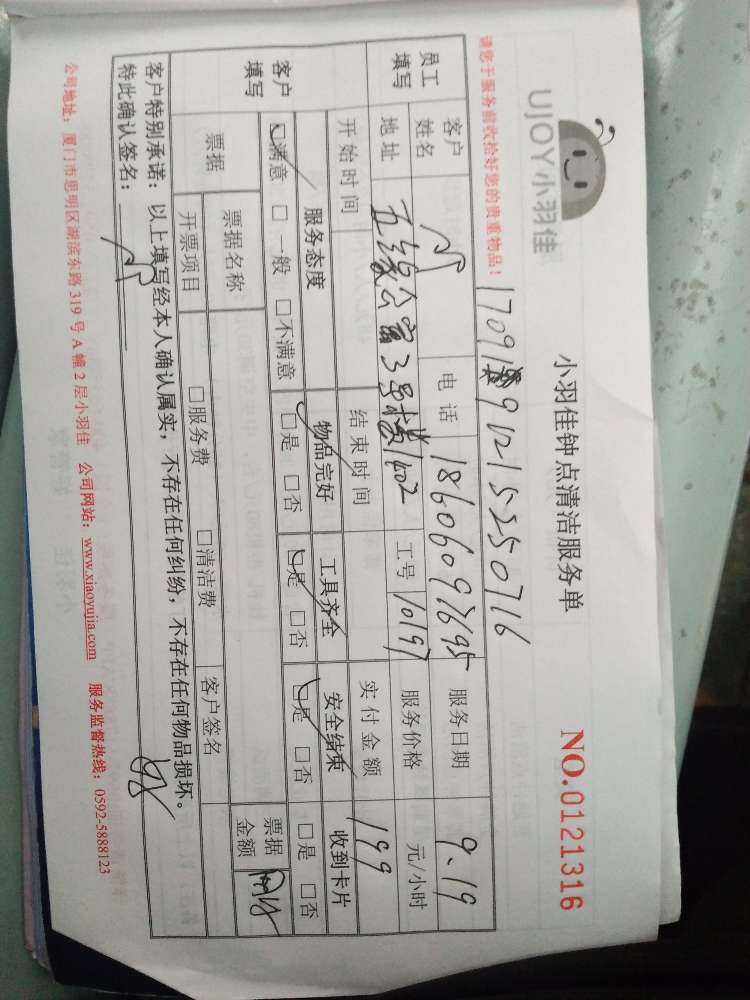 UJOY小羽佳
小羽佳钟点清洁服务单
NO.0121316
请您于服务前收拾好您的贵重物品！
员工填写 客户姓名 电话 18606097695 服务日期 9.19
地址 五缘公寓3号楼1402 工号 10197 服务价格 元/小时
开始时间 结束时间 实付金额 199
客户填写 服务态度 物品完好 工具齐全 安全结束 收到卡片
☑满意 □一般 □不满意 □是 □否 ☑是 □否 ☑是 □否 □是 □否
票据 票据名称 票据金额
开票项目 □服务费 □清洁费 客户签名
客户特别承诺：以上填写经本人确认属实，不存在任何纠纷，不存在任何物品损坏。
特此确认签名：
公司地址：厦门市思明区湖滨东路 319 号 A 幢 2 层小羽佳 公司网站：www.xiaoyujia.com 服务监督热线：0592-5888123